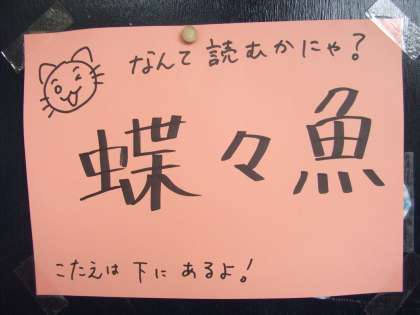 なんて 読むかにゃ？
蝶々魚
こたえは 下に あるよ！